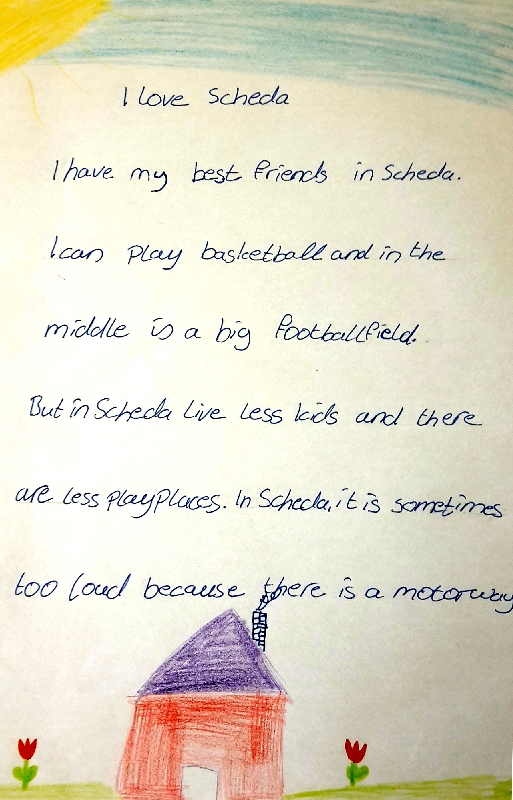 I love Scheda
I have my best friends in Scheda.
I can play basketball and in the
middle is a big footballfield.
But in Scheda live less kids and there
are less playplaces. In Scheda, it is sometimes
too loud because there is a motorway